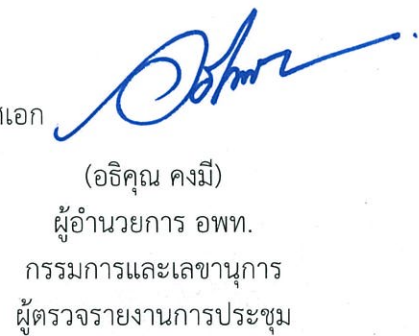 (อธิคุณ คงมี)
ผู้อำนวยการ อพท.
กรรมการและเลขานุการ
ผู้ตรวจรายงานการประชุม